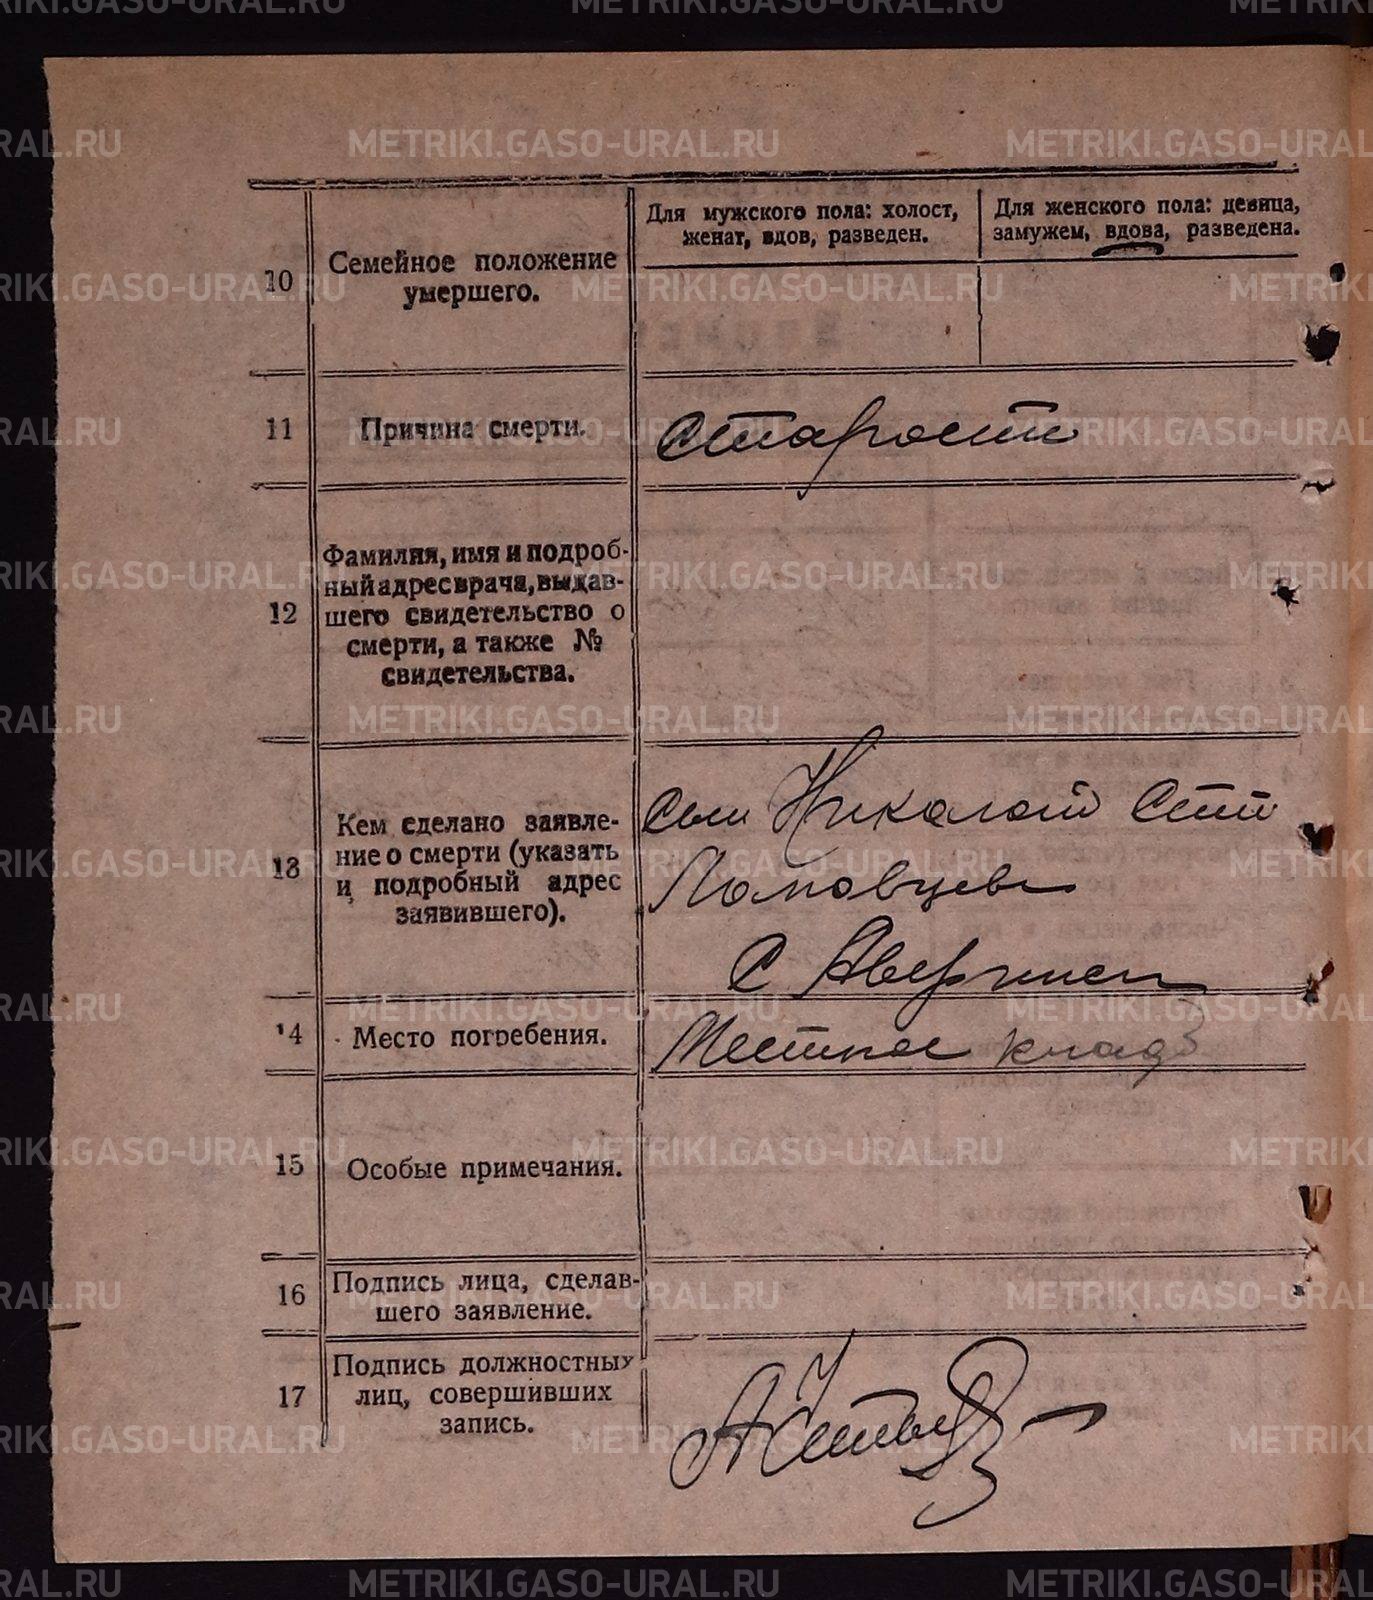 METRIKI.GASO-URAL.RU
Для мужского пола: холост, женат, вдов, разведен.
Для женского пола: девица, замужем, вдова, разведена.
10
Семейное положение
умершего.
11
Причина смерти.
Старости
12
Фамилия, имя и подроб-
ный адрес врача, выдав-
шего свидетельство о
смерти, а также №
свидетельства.
13
Кем сделано заявле-
ние о смерти (указать
и подробный адрес
заявившего).
сын Николай Степ
Ломовцев
с Аверинск
14
Место погребения.
Местное кладб
15
Особые примечания.
16
Подпись лица, сделав-
шего заявление.
17
Подпись должностных
лиц, совершивших
запись.